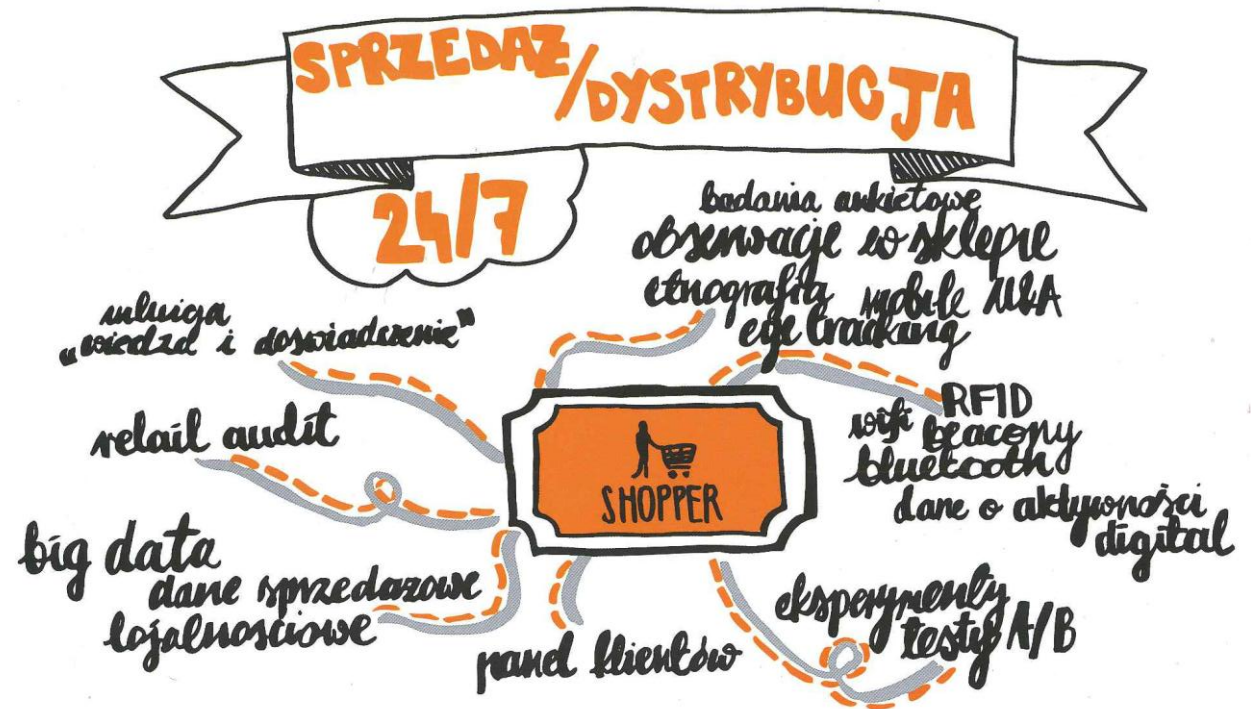 SPRZEDAŻ/DYSTRYBUCJA
24/7
badania ankietowe
obserwacje w sklepie
etnografia mobile U&A
eye tracking
intuicja
„wiedza i doświadczenie"
retail audit
RFID
wifi beacony
bluetooth
dane o aktywności
digital
SHOPPER
big data
dane sprzedażowe
lojalnościowe
panel klientów
eksperymenty
testy A/B